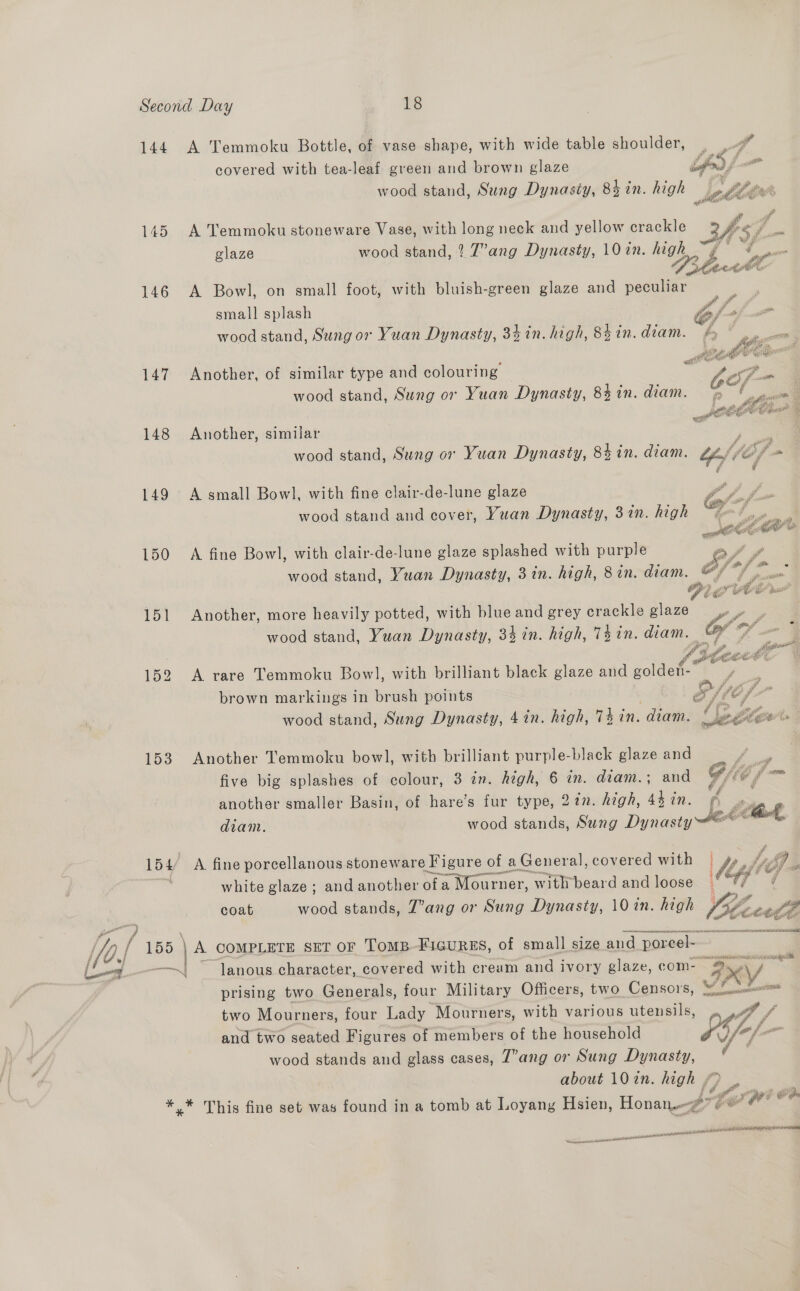 Second Day 18
144 A Temmoku Bottle, of vase shape, with wide table shoulder,
covered with tea-leaf green and brown glaze
wood stand, Sung Dynasty, 8½ in. high
145 A Temmoku stoneware Vase, with long neck and yellow crackle
glaze wood stand, ? T'ang Dynasty, 10 in. high
146 A Bowl, on small foot, with bluish-green glaze and peculiar
small splash
wood stand, Sung or Yuan Dynasty, 3½ in. high, 8½ in. diam.
147 Another, of similar type and colouring
wood stand, Sung or Yuan Dynasty, 8½ in. diam.
148 Another, similar
wood stand, Sung or Yuan Dynasty, 8½ in. diam.
149 A small Bowl, with fine clair-de-lune glaze
wood stand and cover, Yuan Dynasty, 3 in. high
150 A fine Bowl, with clair-de-lune glaze splashed with purple
wood stand, Yuan Dynasty, 3 in. high, 8 in. diam.
151 Another, more heavily potted, with blue and grey crackle glaze
wood stand, Yuan Dynasty, 3½ in. high, 7½ in. diam.
152 A rare Temmoku Bowl, with brilliant black glaze and golden-
brown markings in brush points
wood stand, Sung Dynasty, 4 in. high, 7½ in. diam.
153 Another Temmoku bowl, with brilliant purple-black glaze and
five big splashes of colour, 3 in. high, 6 in. diam.; and
another smaller Basin, of hare's fur type, 2 in. high, 4½ in.
diam. wood stands, Sung Dynasty
154 A fine porcellanous stoneware Figure of a General, covered with
white glaze; and another of a Mourner, with beard and loose
coat wood stands, T'ang or Sung Dynasty, 10 in. high
155 A COMPLETE SET OF TOMB FIGURES, of small size and porcel-
lanous character, covered with cream and ivory glaze, com-
prising two Generals, four Military Officers, two Censors,
two Mourners, four Lady Mourners, with various utensils,
and two seated Figures of members of the household
wood stands and glass cases, T'ang or Sung Dynasty,
about 10 in. high
*⁎* This fine set was found in a tomb at Loyang Hsien, Honan